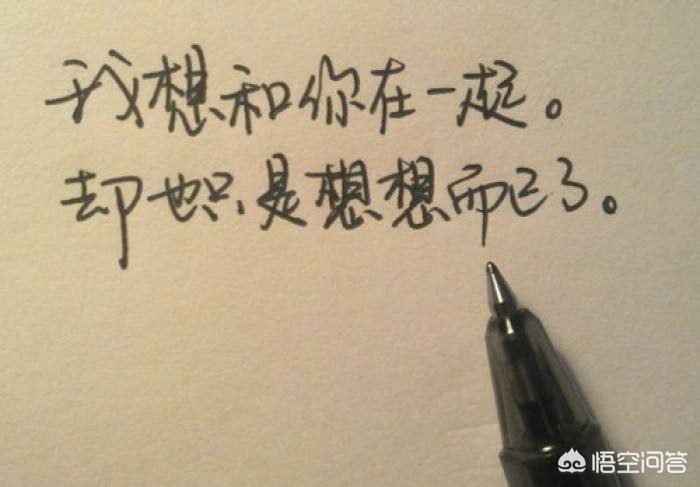 我想和你在一起。
却也只是想想而已了。
悟空问答